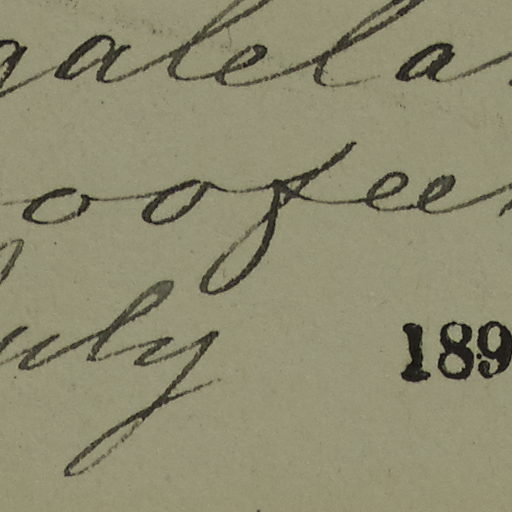 galela
oofee
uly 189